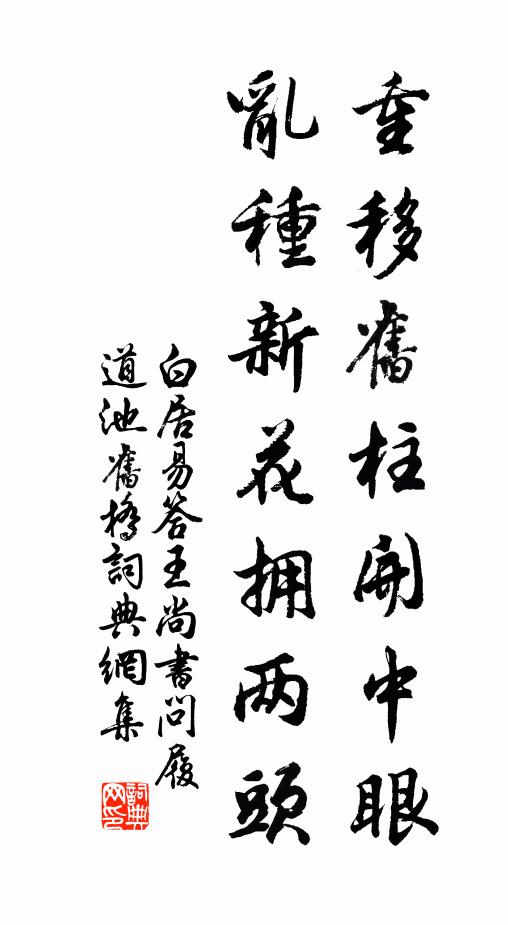 重移舊柱開中眼
亂種新花拥两頭
白居易答王尚書問履
道池舊橋詞典網集
詞典
网印